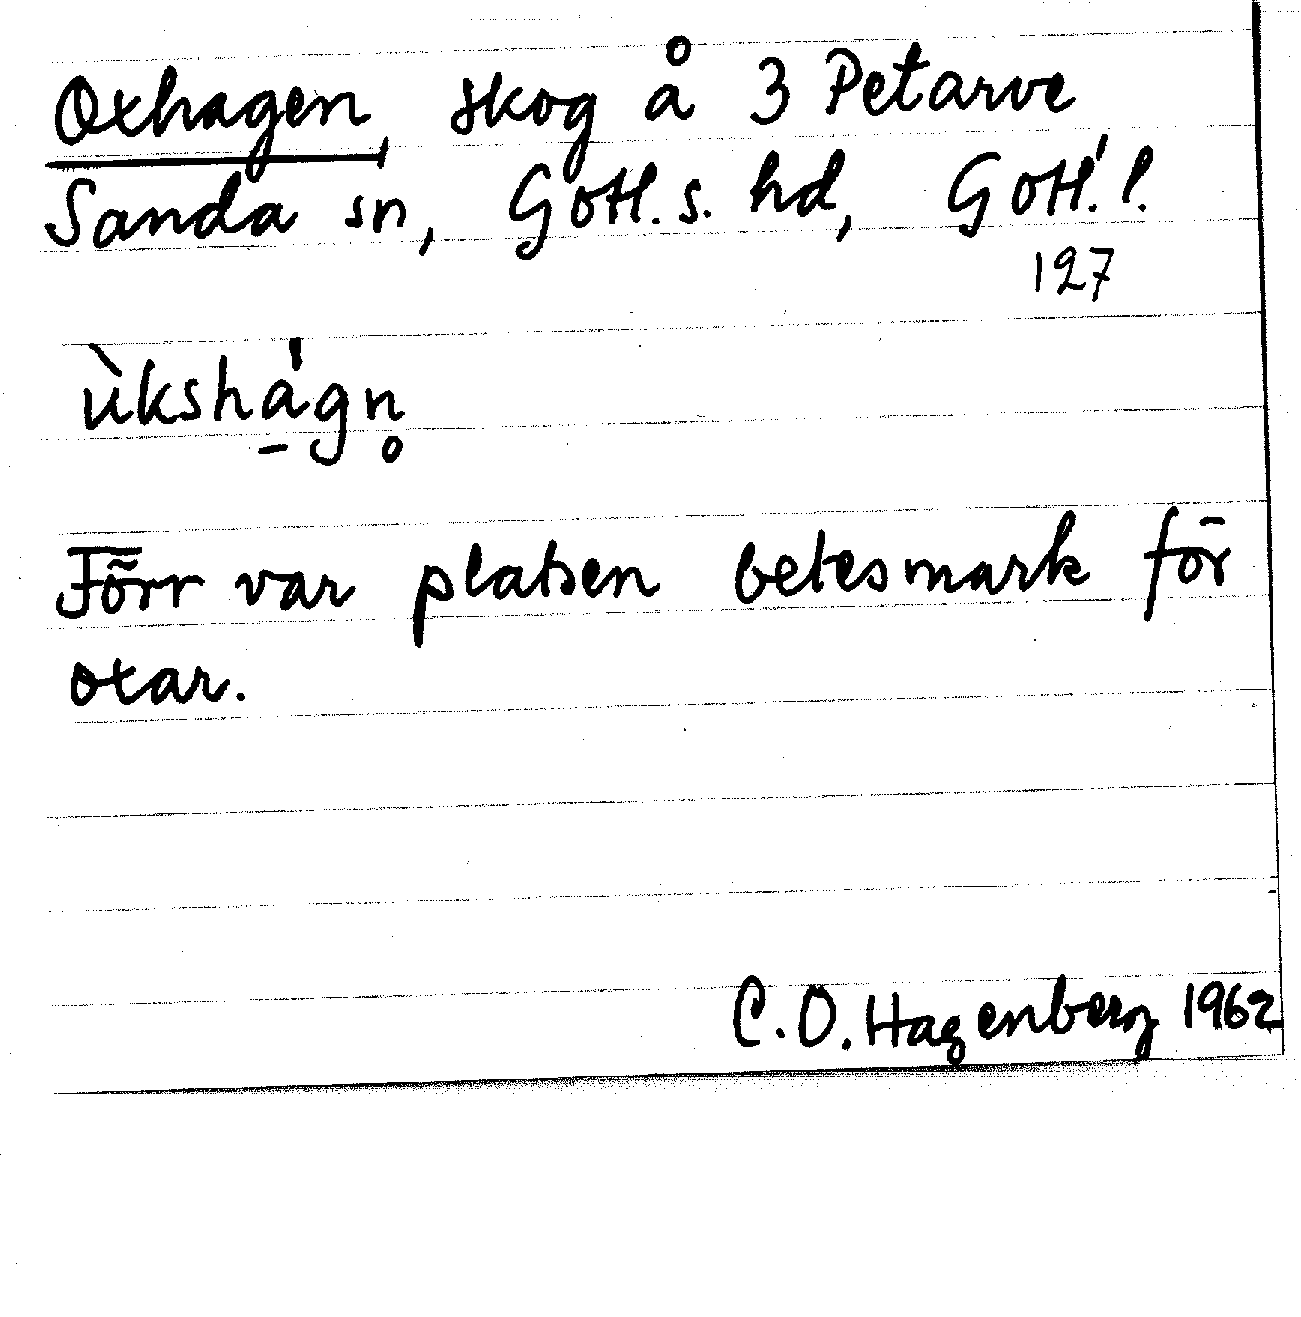 Oxhagen, skog å 3 Petarve
Sanda sn, Gotl. s. hd, Gotl. l.
127
ùkshá̱gn̥
Förr var platsen betesmark för
oxar.
C. O. Hagenberg 1962